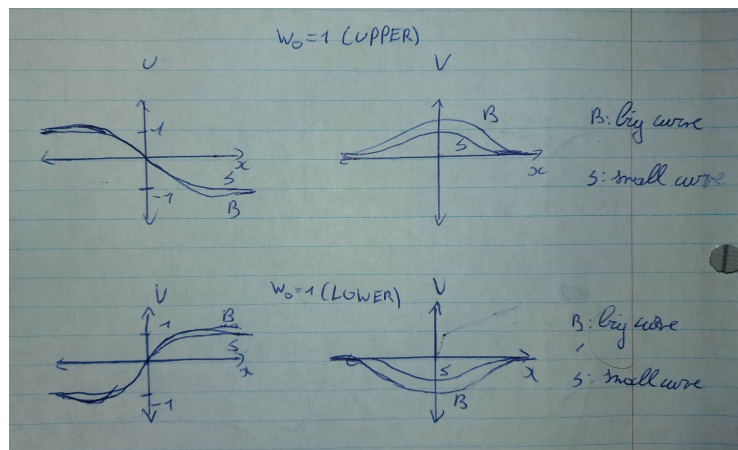 W₀=1 (UPPER)
U
V
1
B
S
x
S
-1
B
x
B: big curve
S: small curve
W₀=1 (LOWER)
U
V
1
B
S
x
-1
S
B
x
B: big curve
S: small curve